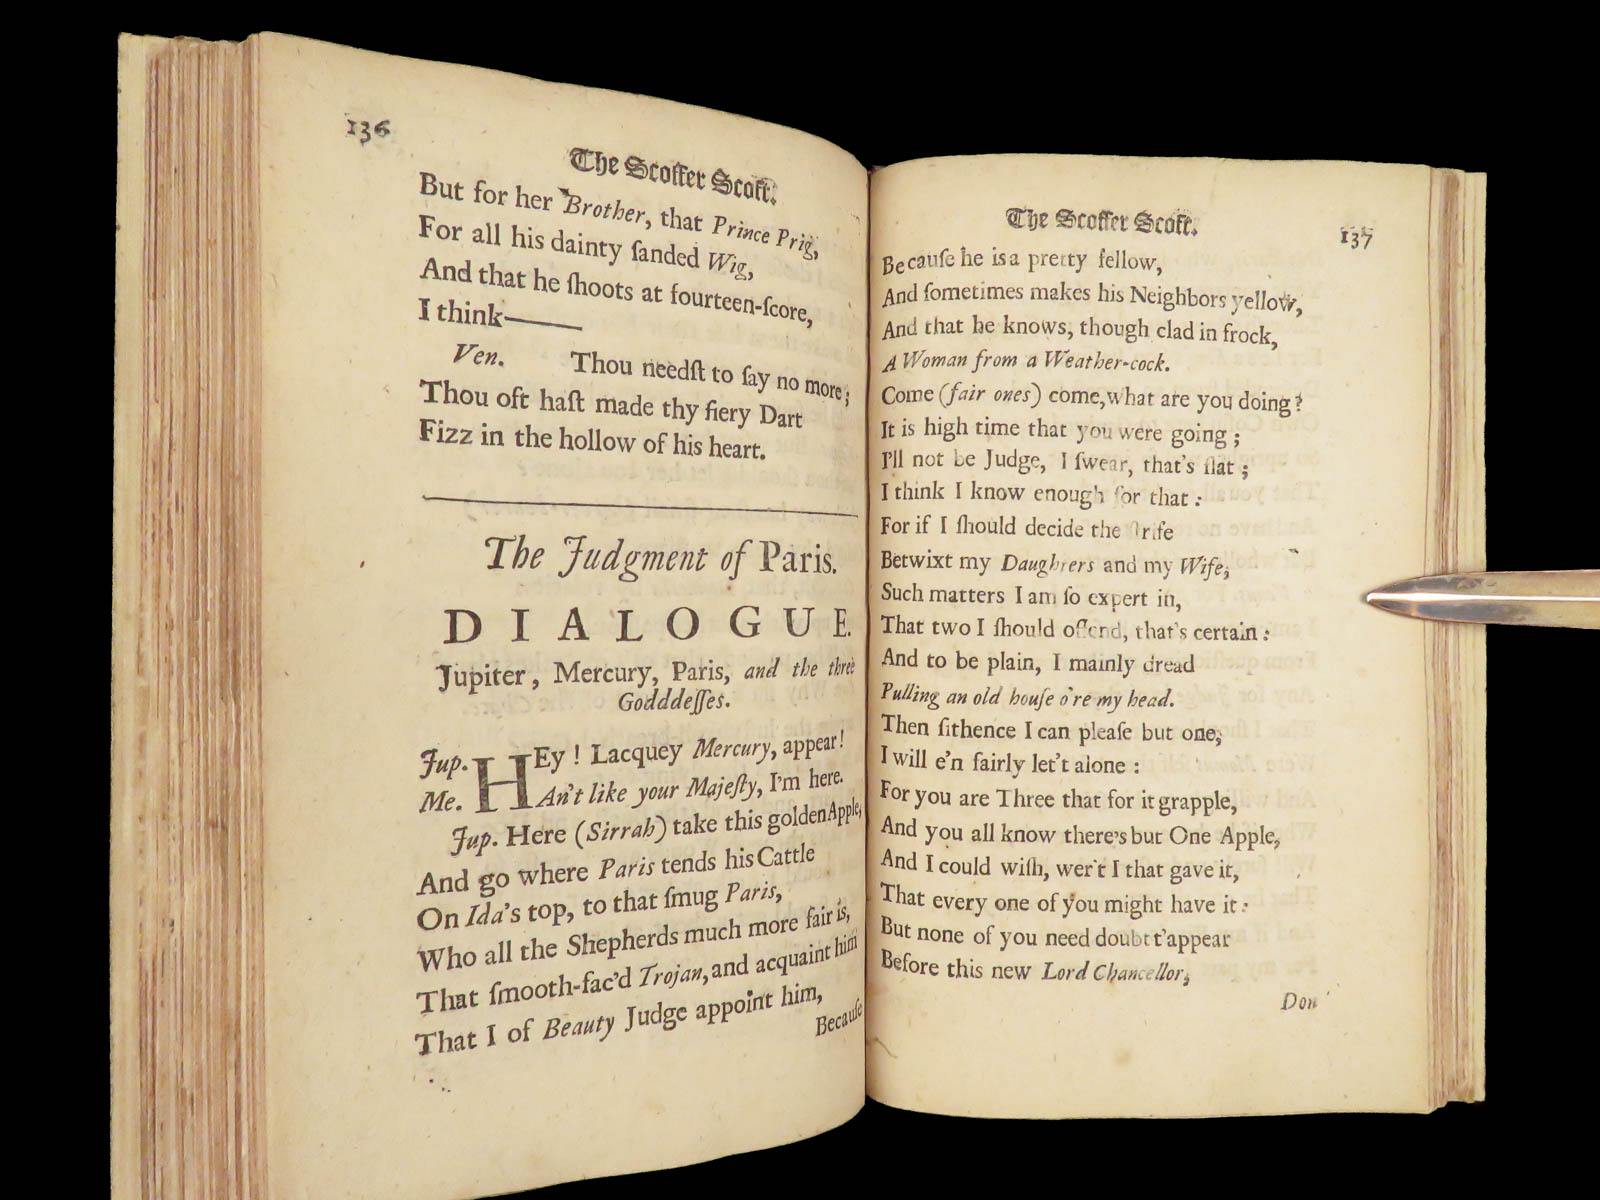 136
The Scoffer Scoft.
But for her Brother, that Prince Prig,
For all his dainty ſanded Wig,
And that he ſhoots at fourteen-ſcore,
I think——
Ven. Thou needſt to ſay no more;
Thou oft haſt made thy fiery Dart
Fizz in the hollow of his heart.
The Judgment of Paris.
DIALOGUE.
Jupiter, Mercury, Paris, and the three
Godddeſſes.
Jup. HEy! Lacquey Mercury, appear!
Me. An't like your Majeſty, I'm here.
Jup. Here (Sirrah) take this golden Apple,
And go where Paris tends his Cattle
On Ida's top, to that ſmug Paris,
Who all the Shepherds much more fair is,
That ſmooth-fac'd Trojan, and acquaint him
That I of Beauty Judge appoint him,
Becauſe
The Scoffer Scoft.
137
Becauſe he is a pretty fellow,
And ſometimes makes his Neighbors yellow,
And that he knows, though clad in frock,
A Woman from a Weather-cock.
Come (fair ones) come, what are you doing?
It is high time that you were going;
I'll not be Judge, I ſwear, that's flat;
I think I know enough for that:
For if I ſhould decide the ſtrife
Betwixt my Daughters and my Wife,
Such matters I am ſo expert in,
That two I ſhould offend, that's certain:
And to be plain, I mainly dread
Pulling an old houſe o're my head.
Then ſithence I can pleaſe but one,
I will e'n fairly let't alone:
For you are Three that for it grapple,
And you all know there's but One Apple,
And I could wiſh, wer't I that gave it,
That every one of you might have it:
But none of you need doubt t'appear
Before this new Lord Chancellor;
Don